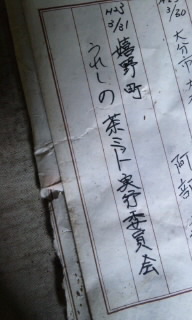 H23
3/30
大分市大
阿部
H23
3/31
嬉野町、
うれしの茶ミット実行委員会